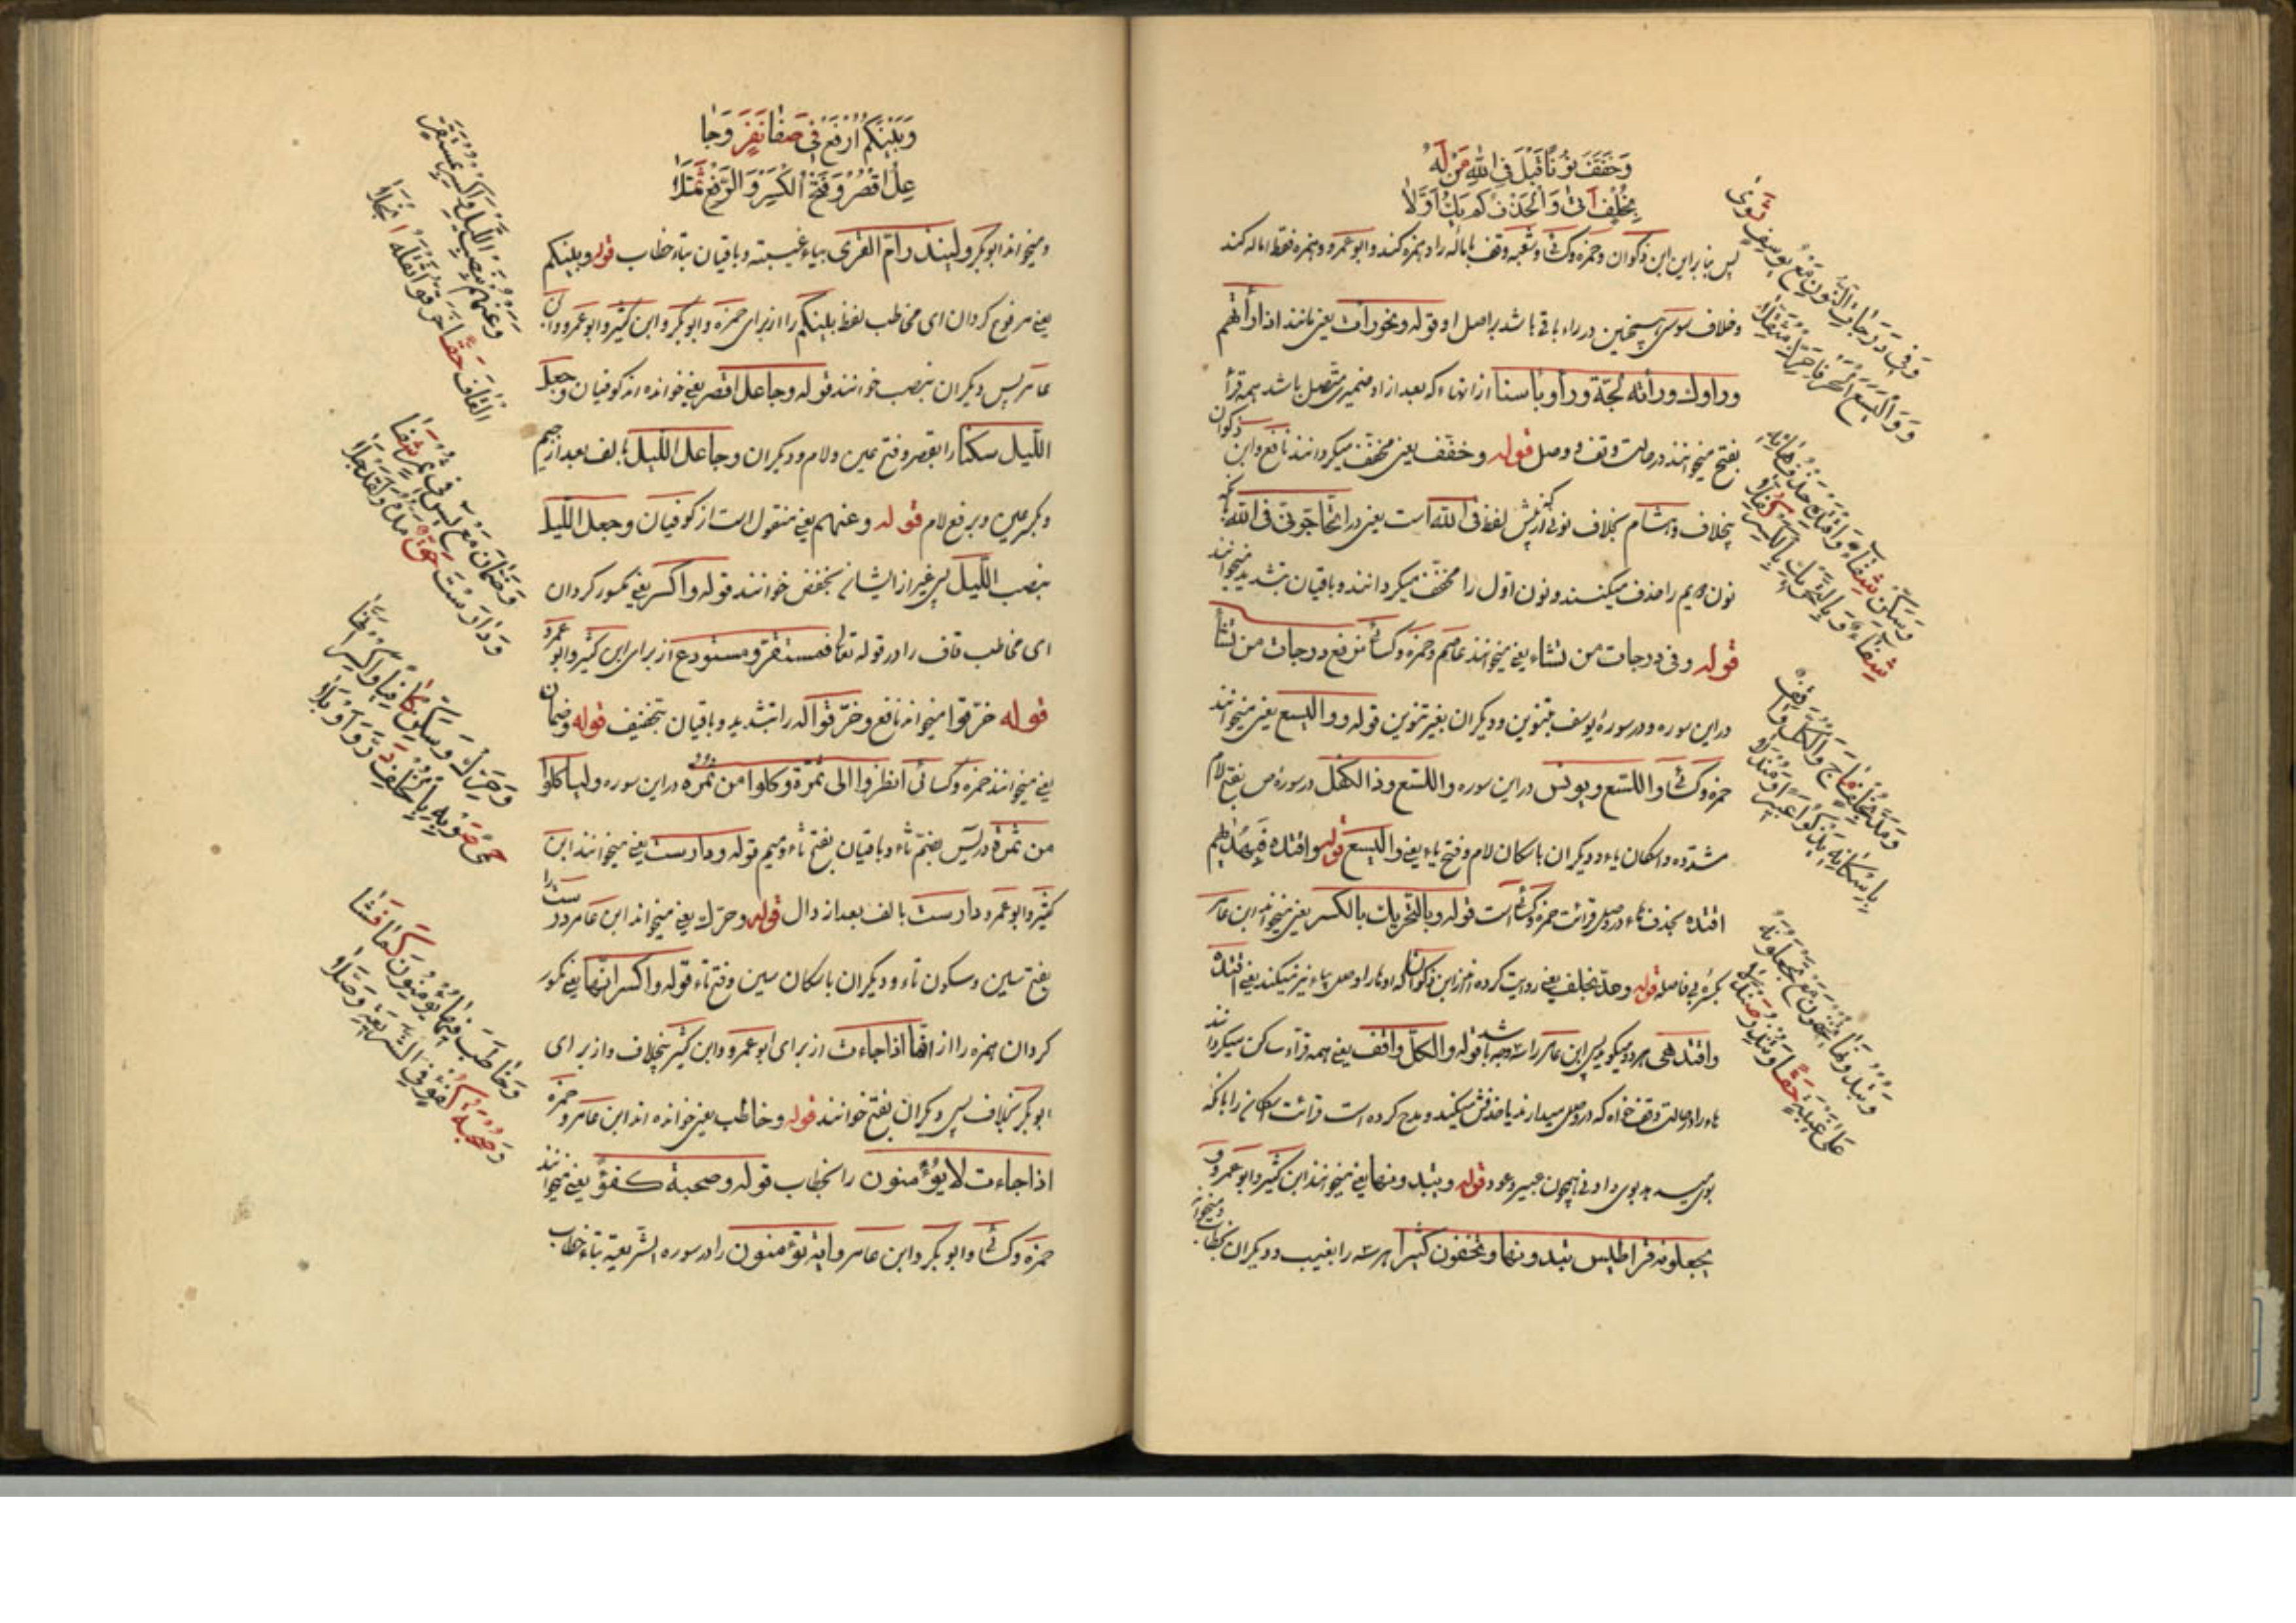 وَخَفَّفَ نُونًا قَبْلَ فِي اللّٰهِ مَنْ لَهُ
بِخُلْفٍ اَتٰى وَالْحَذْفُ لَمْ يَكُ اَوَّلَا
پس بنا بر این ابن ذکوان و حمزه و کسائی و شعبه وقف باماله را و همزه کنند و ابو عمرو و همزه فقط اماله کنند
و خلاف سوسی همچنین در راء باقی باشد بر اصل او و قوله و نحو رأت یعنی مانند اذا رأتهم
و رأوك و رأته لجّة و رأوا بأسنا از انهاء که بعد از او ضمیری متصل باشد همه قرأ
بفتح میخوانند در حالت وقف و وصل قوله و خفّف یعنی مخفّف میکردانند نافع و ابن ذکوان
بخلاف و هشام بخلاف نونی که پیش لفظ فی اللّه است یعنی در اتحاجّونی فی اللّه
نون دویم را حذف میکنند و نون اوّل را مخفّف میکردانند و باقیان بتشدید میخوانند
قوله و فی درجات من نشاء یعنی میخوانند عاصم و حمزه و کسائی نرفع درجات من نشأ
در این سوره و در سورهٔ یوسف بتنوین و دیکران بغیر تنوین قوله و و الیسع یعنی میخوانند
حمزه و کسائی و اللیسع و یونس در این سوره و اللیسع و ذا الکفل در سوره ص بفتح لام
مشدّده و اسکان یاء و دیکران باسکان لام و فتح یاء یعنی و الیسع قوله و اقتده فبهدٰیهم
اقتده بحذف هاء در وصل قرائت حمزه و کسائی است قوله و بالتحریك بالکسر یعنی میخواند ابن عامر
بکسرهٔ بی فاصله قوله و مدّ بخلف یعنی روایت کرده اند از ابن ذکوان که او ها را وصل بیاء نیز میکند یعنی اقتده
و اقتدهی هر دو میکوید پس ابن عامر را سه وجه باشد قوله و الکلّ واقف یعنی همه قرأء ساکن میکردانند
هاء را در حالت وقف خواه که در وصل میدارند یا حذفش میکنند و مدح کرده است قرائت اسکان را بانکه
بوی میرسد بوی داودنی همچون عبیر و عود قوله و یبدونها یعنی میخوانند ابن کثیر و ابو عمرو و
یجعلونه قراطیس یبدونها و یخفون کثیرا هر سه را بغیب و دیکران بخطاب و میخواند
وَفِي دَرَجَاتِ النُّونُ مَعَ يُوسُفٍ ثَوٰى
وَوَالَّيْسَعَ الْحَرْفَانِ حَرِّكْ مُثَقِّلَا
وَسَكِّنْ شِفَاءً وَاقْتَدِهْ حَذْفُ هَائِهِ
شِفَاءً وَبِالتَّحْرِيكِ بِالْكَسْرِ كُفِّلَا
وَمُدَّ بِخُلْفٍ مَاجَ وَالْكُلُّ وَاقِفٌ
بِاِسْكَانِهِ يَذْكُو عَبِيرًا وَمَنْدَلَا
وَتُبْدُونَهَا تُخْفُونَ مَعْ تَجْعَلُونَهُ
عَلٰى غَيْبِهِ حَقًّا وَيُنْذِرَ صَنْدَلَا
وَبَيْنَكُمُ ارْفَعْ فِي صَفَا نَفَرٍ وَجَا
عِلُ اقْصُرْ وَفَتْحُ الْكَسْرِ وَالرَّفْعِ ثُمِّلَا
و میخواند ابو بکر و لینذر امّ القری بیاء غیبت و باقیان بتاء خطاب قوله و بینکم
یعنی مرفوع کردان ای مخاطب لفظ بینکم را از برای حمزه و ابو بکر و ابن کثیر و ابو عمرو و ابن
عامر پس دیکران بنصب خوانند قوله و جاعل اقصر یعنی خوانده اند کوفیان و جعل
اللّیل سکنا را بقصر و فتح عین و لام و دیکران و جاعل اللّیل بالف بعد از جیم
و بکسر عین و برفع لام قوله و عنهم یعنی منقول است از کوفیان و جعل اللّیل
بنصب اللّیل پس غیر از ایشان بخفض خوانند قوله و اکسر یعنی مکسور کردان
ای مخاطب قاف را در قوله تعالی فمستقرّ و مستودع از برای ابن کثیر و ابو عمرو
قوله خرّقوا میخواند نافع و خرّقوا له را بتشدید و باقیان بتخفیف قوله و ضمّان
یعنی میخوانند حمزه و کسائی انظروا الی ثمره و کلوا من ثمره در این سوره و لیأکلوا
من ثمره در یٓس بضمّ ثاء و باقیان بفتح ثاء و میم قوله و دارست یعنی میخوانند ابن
کثیر و ابو عمرو دارست بالف بعد از دال قوله و حرّك یعنی میخواند ابن عامر درست را
بفتح سین و سکون تاء و دیکران باسکان سین و فتح تاء قوله و اکسر انّها یعنی مکسور
کردان همزه را از انّها اذا جاءت از برای ابو عمرو و ابن کثیر بخلاف و از برای
ابو بکر بخلاف پس دیکران بفتح خوانند قوله و خاطب یعنی خوانده اند ابن عامر و حمزه
اذا جاءت لا یؤمنون را بخطاب قوله و صحبة کفؤ یعنی میخوانند
حمزه و کسائی و ابو بکر و ابن عامر و ایته تؤمنون را در سوره الشریعة بتاء خطاب
وَعَنْهُمْ بِنَصْبِ اللَّيْلِ وَاكْسِرْ بِمُسْتَقَرٌّ
الْقَافَ حَقًّا خَرَّقُوا ثِقْلُهُ انْجَلَا
وَضَمَّانِ مَعْ يٰسٓ فِي ثَمَرٍ شَفَا
وَدَارَسْتَ حَقٌّ مَدُّهُ وَلَقَدْ حَلَا
وَحَرِّكْ وَسَكِّنْ كَافِيًا وَاكْسِرِ انَّهَا
حِمٰى صَوْبِهِ بِالْخُلْفِ دَرَّ وَاَوْبَلَا
وَخَاطَبَ فِيهَا يُؤْمِنُونَ كَمَا فَشَا
وَصُحْبَةُ كُفْؤٍ فِي الشَّرِيعَةِ وَصَّلَا